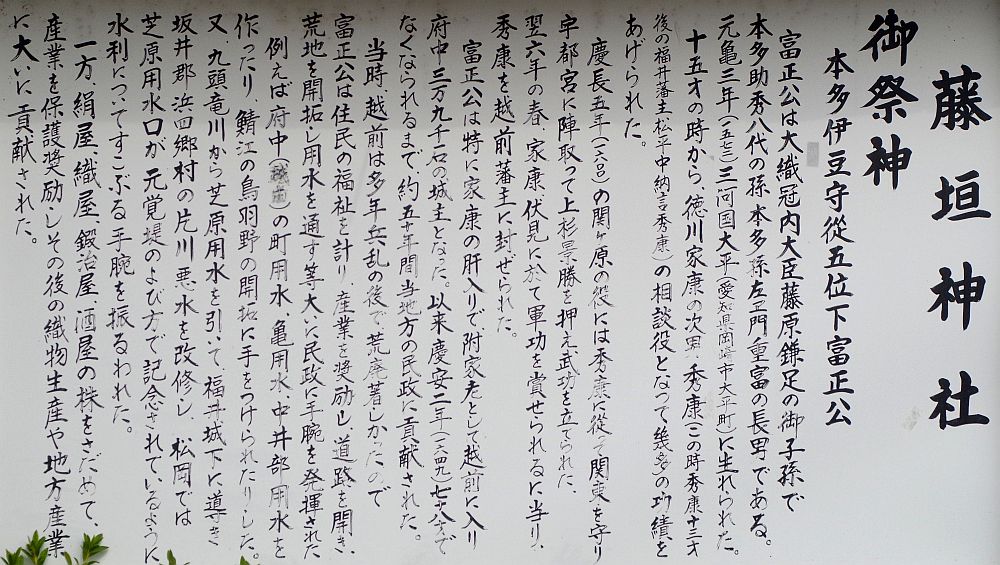 藤垣神社
御祭神
本多伊豆守従五位下富正公
富正公は大織冠内大臣藤原鎌足の御子孫で
本多助秀八代の孫本多孫左エ門重富の長男である。
元亀三年(一五七三)三河国大平(愛知県岡崎市大平町)に生れられた。
十五才の時から、徳川家康の次男、秀康(この時秀康十三才
後の福井藩主松平中納言秀康)の相談役となって幾多の功績を
あげられた。
慶長五年(一六〇〇)の関ヶ原の役には秀康に従って関東を守り
宇都宮に陣取って上杉景勝を押え武功を立てられた、
翌六年の春、家康伏見に於て軍功を賞せられるに当り、
秀康を越前藩主に封ぜられた。
富正公は特に家康の肝入りで附家老として越前に入り
府中三万九千石の城主となった。以来慶安二年(一六四九)七十八才で
なくなられるまで約五十年間当地方の民政に貢献された。
当時、越前は多年兵乱の後で、荒廃著しかったので
富正公は住民の福祉を計り、産業を奨励し、道路を開き、
荒地を開拓し用水を通す等大いに民政に手腕を発揮された
例えば府中()の町用水、亀用水、中井部用水を
作ったり、鯖江の鳥羽野の開拓に手をつけられたりした。
又、九頭竜川から芝原用水を引いて、福井城下に導き
坂井郡浜四郷村の片川悪水を改修し、松岡では
芝原用水口が元覚堤のよび方で記念されているように
水利についてすこぶる手腕を振るわれた。
一方、絹屋、織屋、鍛冶屋、酒屋の株をさだめて、
産業を保護奨励しその後の織物生産や地方産業
に大いに貢献された。